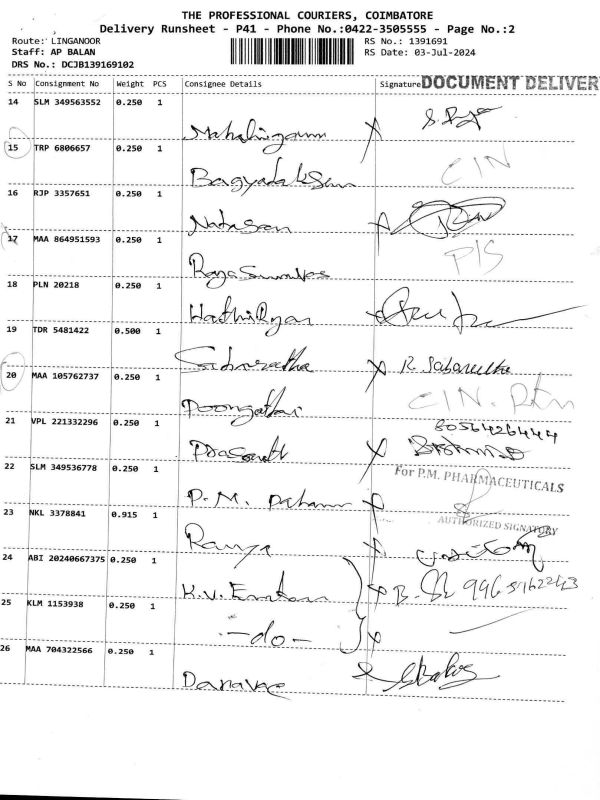 THE PROFESSIONAL COURIERS, COIMBATORE
Delivery Runsheet - P41 - Phone No.:0422-3505555 - Page No.:2
Route: LINGANOOR
Staff: AP BALAN
DRS No.: DCJB139169102
RS No.: 1391691
RS Date: 03-Jul-2024
S No Consignment No Weight PCS Consignee Details Signature DOCUMENT DELIVER
14 SLM 349563552 0.250 1
Mahalingam X
15 TRP 6806657 0.250 1
CIN
16 RJP 3357651 0.250 1
Natasan X
17 MAA 864951593 0.250 1
P/S
18 PLN 20218 0.250 1
19 TDR 5481422 0.500 1
X
20 MAA 105762737 0.250 1
CIN.
Poongathai
21 VPL 221332296 0.250 1
8056426444
Prasanth X
22 SLM 349536778 0.250 1
For P.M. PHARMACEUTICALS
P.M. X
23 NKL 3378841 0.915 1
AUTHORIZED SIGNATORY
Ramya X
24 ABI 20240667375 0.250 1
K.V. X B.
25 KLM 1153938 0.250 1
-do- X
26 MAA 704322566 0.250 1